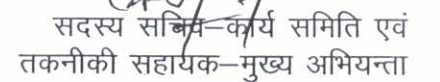 सदस्य सचिव–कार्य समिति एवं
तकनीकी सहायक–मुख्य अभियन्ता